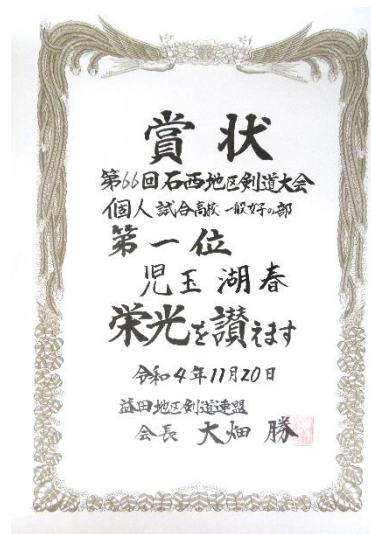 賞状
第66回石西地区剣道大会
個人試合高校一般女子の部
第一位
児玉湖春
栄光を讃えます
令和4年11月20日
益田地区剣道連盟
会長 大畑 勝